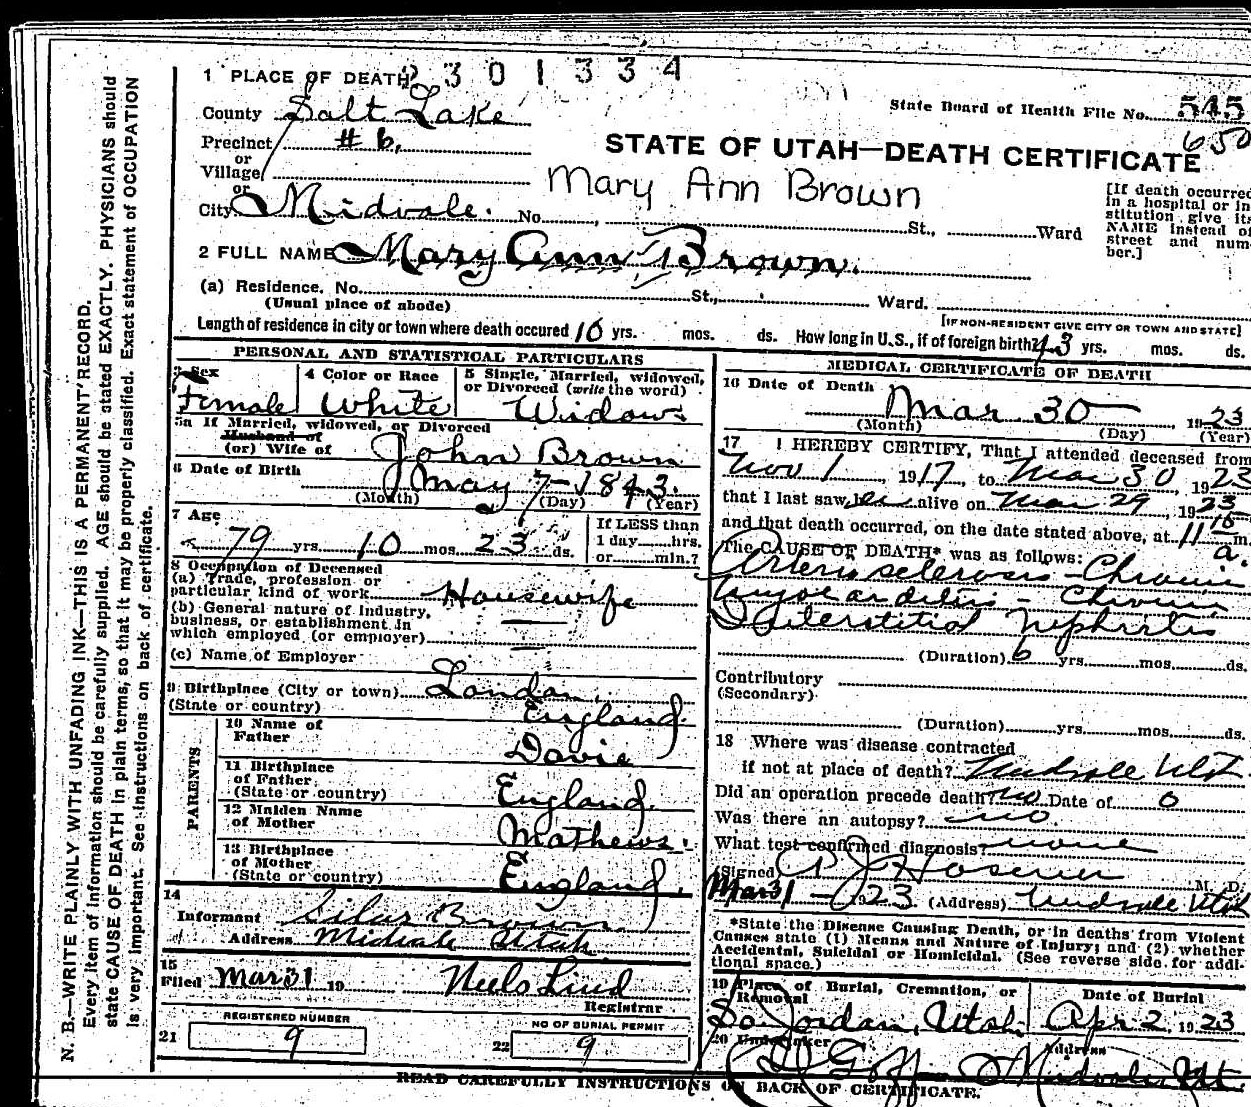 2301334
1 PLACE OF DEATH
State Board of Health File No. 545
650
County Salt Lake
Precinct # 6,
or
Village
or
STATE OF UTAH—DEATH CERTIFICATE
Mary Ann Brown
City Midvale. No. , St., Ward
[If death occurred in a hospital or institution give its NAME instead of street and number.]
2 FULL NAME Mary Ann Brown.
(a) Residence. No. St., Ward.
(Usual place of abode)
[IF NON-RESIDENT GIVE CITY OR TOWN AND STATE]
Length of residence in city or town where death occured 10 yrs. mos. ds. How long in U.S., if of foreign birth? 43 yrs. mos. ds.
PERSONAL AND STATISTICAL PARTICULARS
3 Sex
Female
4 Color or Race
White
5 Single, Married, widowed,
or Divorced (write the word)
Widow
5a If Married, widowed, or Divorced
Husband of
(or) Wife of John Brown
6 Date of Birth May 7-1843.
(Month) (Day) (Year)
7 Age
79 yrs. 10 mos. 23 ds.
If LESS than
1 day....hrs.
or....min.?
8 Occupation of Deceased
(a) Trade, profession or
particular kind of work Housewife
(b) General nature of industry,
business, or establishment in
which employed (or employer)
(c) Name of Employer
9 Birthplace (City or town) London
(State or country) England
PARENTS
10 Name of
Father Davie
11 Birthplace
of Father
(State or country) England
12 Maiden Name
of Mother Mathews
13 Birthplace
of Mother
(State or country) England
14
Informant Silas Brown
Address Midvale Utah
15
Filed Mar 31 19 Neels Lind
Registrar
REGISTERED NUMBER
21 9
NO OF BURIAL PERMIT
22 9
MEDICAL CERTIFICATE OF DEATH
16 Date of Death Mar 30 1923
(Month) (Day) (Year)
17 I HEREBY CERTIFY, That I attended deceased from
Nov 1 1917, to Mar 30 1923
that I last saw alive on Mar 29, 1923
and that death occurred, on the date stated above, at 11 10 a. m.
The CAUSE OF DEATH* was as follows:
Arterio sclerosis - Chronic
Myocarditis - Chronic
Interstitial Nephritis
(Duration) 6 yrs. mos. ds.
Contributory
(Secondary)
(Duration) yrs. mos. ds.
18 Where was disease contracted
if not at place of death? Midvale Ut
Did an operation precede death? no Date of 0
Was there an autopsy? no.
What test confirmed diagnosis? none
(Signed) M. D.
Mar 31-1923 (Address) Midvale Utah
*State the Disease Causing Death, or in deaths from Violent
Causes state (1) Means and Nature of Injury; and (2) whether
Accidental, Suicidal or Homicidal. (See reverse side for addi-
tional space.)
19 Place of Burial, Cremation, or
Removal
So. Jordan, Utah
Date of Burial
Apr 2 1923
20 Undertaker
Goff
Address
Midvale, Ut.
READ CAREFULLY INSTRUCTIONS ON BACK OF CERTIFICATE.
N. B.—WRITE PLAINLY WITH UNFADING INK—THIS IS A PERMANENT RECORD.
Every item of information should be carefully supplied. AGE should be stated EXACTLY. PHYSICIANS should
state CAUSE OF DEATH in plain terms, so that it may be properly classified. Exact statement of OCCUPATION
is very important. See instructions on back of certificate.